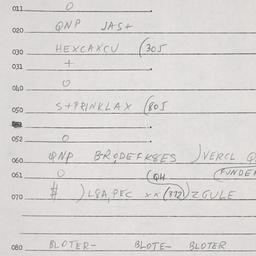 011 O
020 QNP JAS+
030 HEXCAXCU (305
031 +
040 O
050 S+PRINKLAX (805
052 O
060 QNP BRODEFK8ES )VERCL
051 O (QH (FUNDE
070 # )L8A,PEC xx (372) ZGULE
080 BLOTER- BLOTE- BLOTER